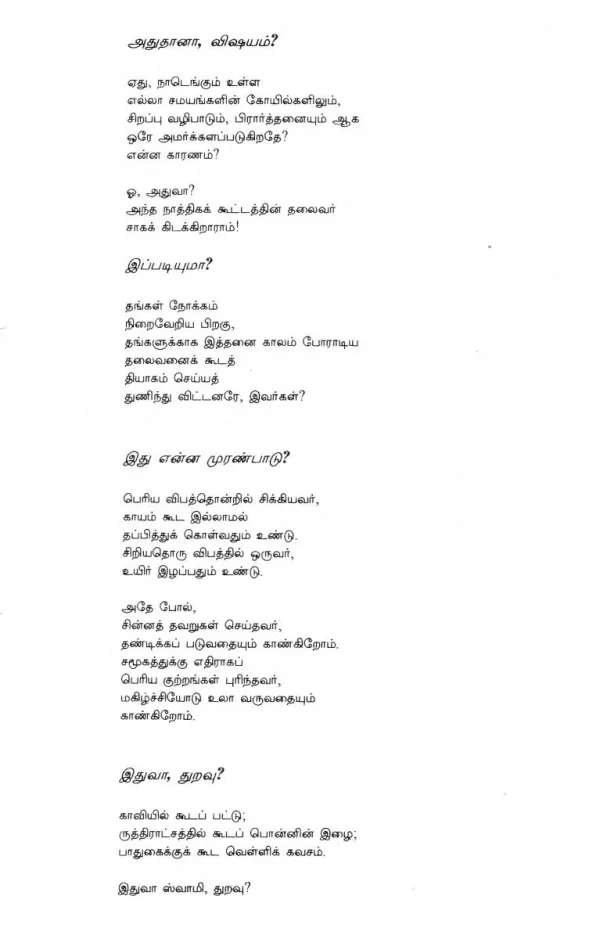 அதுதானா, விஷயம்?
ஏது, நாடெங்கும் உள்ள
எல்லா சமயங்களின் கோயில்களிலும்,
சிறப்பு வழிபாடும், பிரார்த்தனையும் ஆக
ஒரே அமர்க்களப்படுகிறதே?
என்ன காரணம்?
ஓ, அதுவா?
அந்த நாத்திகக் கூட்டத்தின் தலைவர்
சாகக் கிடக்கிறாராம்!
இப்படியுமா?
தங்கள் நோக்கம்
நிறைவேறிய பிறகு,
தங்களுக்காக இத்தனை காலம் போராடிய
தலைவனைக் கூடத்
தியாகம் செய்யத்
துணிந்து விட்டனரே, இவர்கள்?
இது என்ன முரண்பாடு?
பெரிய விபத்தொன்றில் சிக்கியவர்,
காயம் கூட இல்லாமல்
தப்பித்துக் கொள்வதும் உண்டு.
சிறியதொரு விபத்தில் ஒருவர்,
உயிர் இழப்பதும் உண்டு.
அதே போல்,
சின்னத் தவறுகள் செய்தவர்,
தண்டிக்கப் படுவதையும் காண்கிறோம்.
சமூகத்துக்கு எதிராகப்
பெரிய குற்றங்கள் புரிந்தவர்,
மகிழ்ச்சியோடு உலா வருவதையும்
காண்கிறோம்.
இதுவா, துறவு?
காவியில் கூடப் பட்டு;
ருத்திராட்சத்தில் கூடப் பொன்னின் இழை;
பாதுகைக்குக் கூட வெள்ளிக் கவசம்.
இதுவா ஸ்வாமி, துறவு?